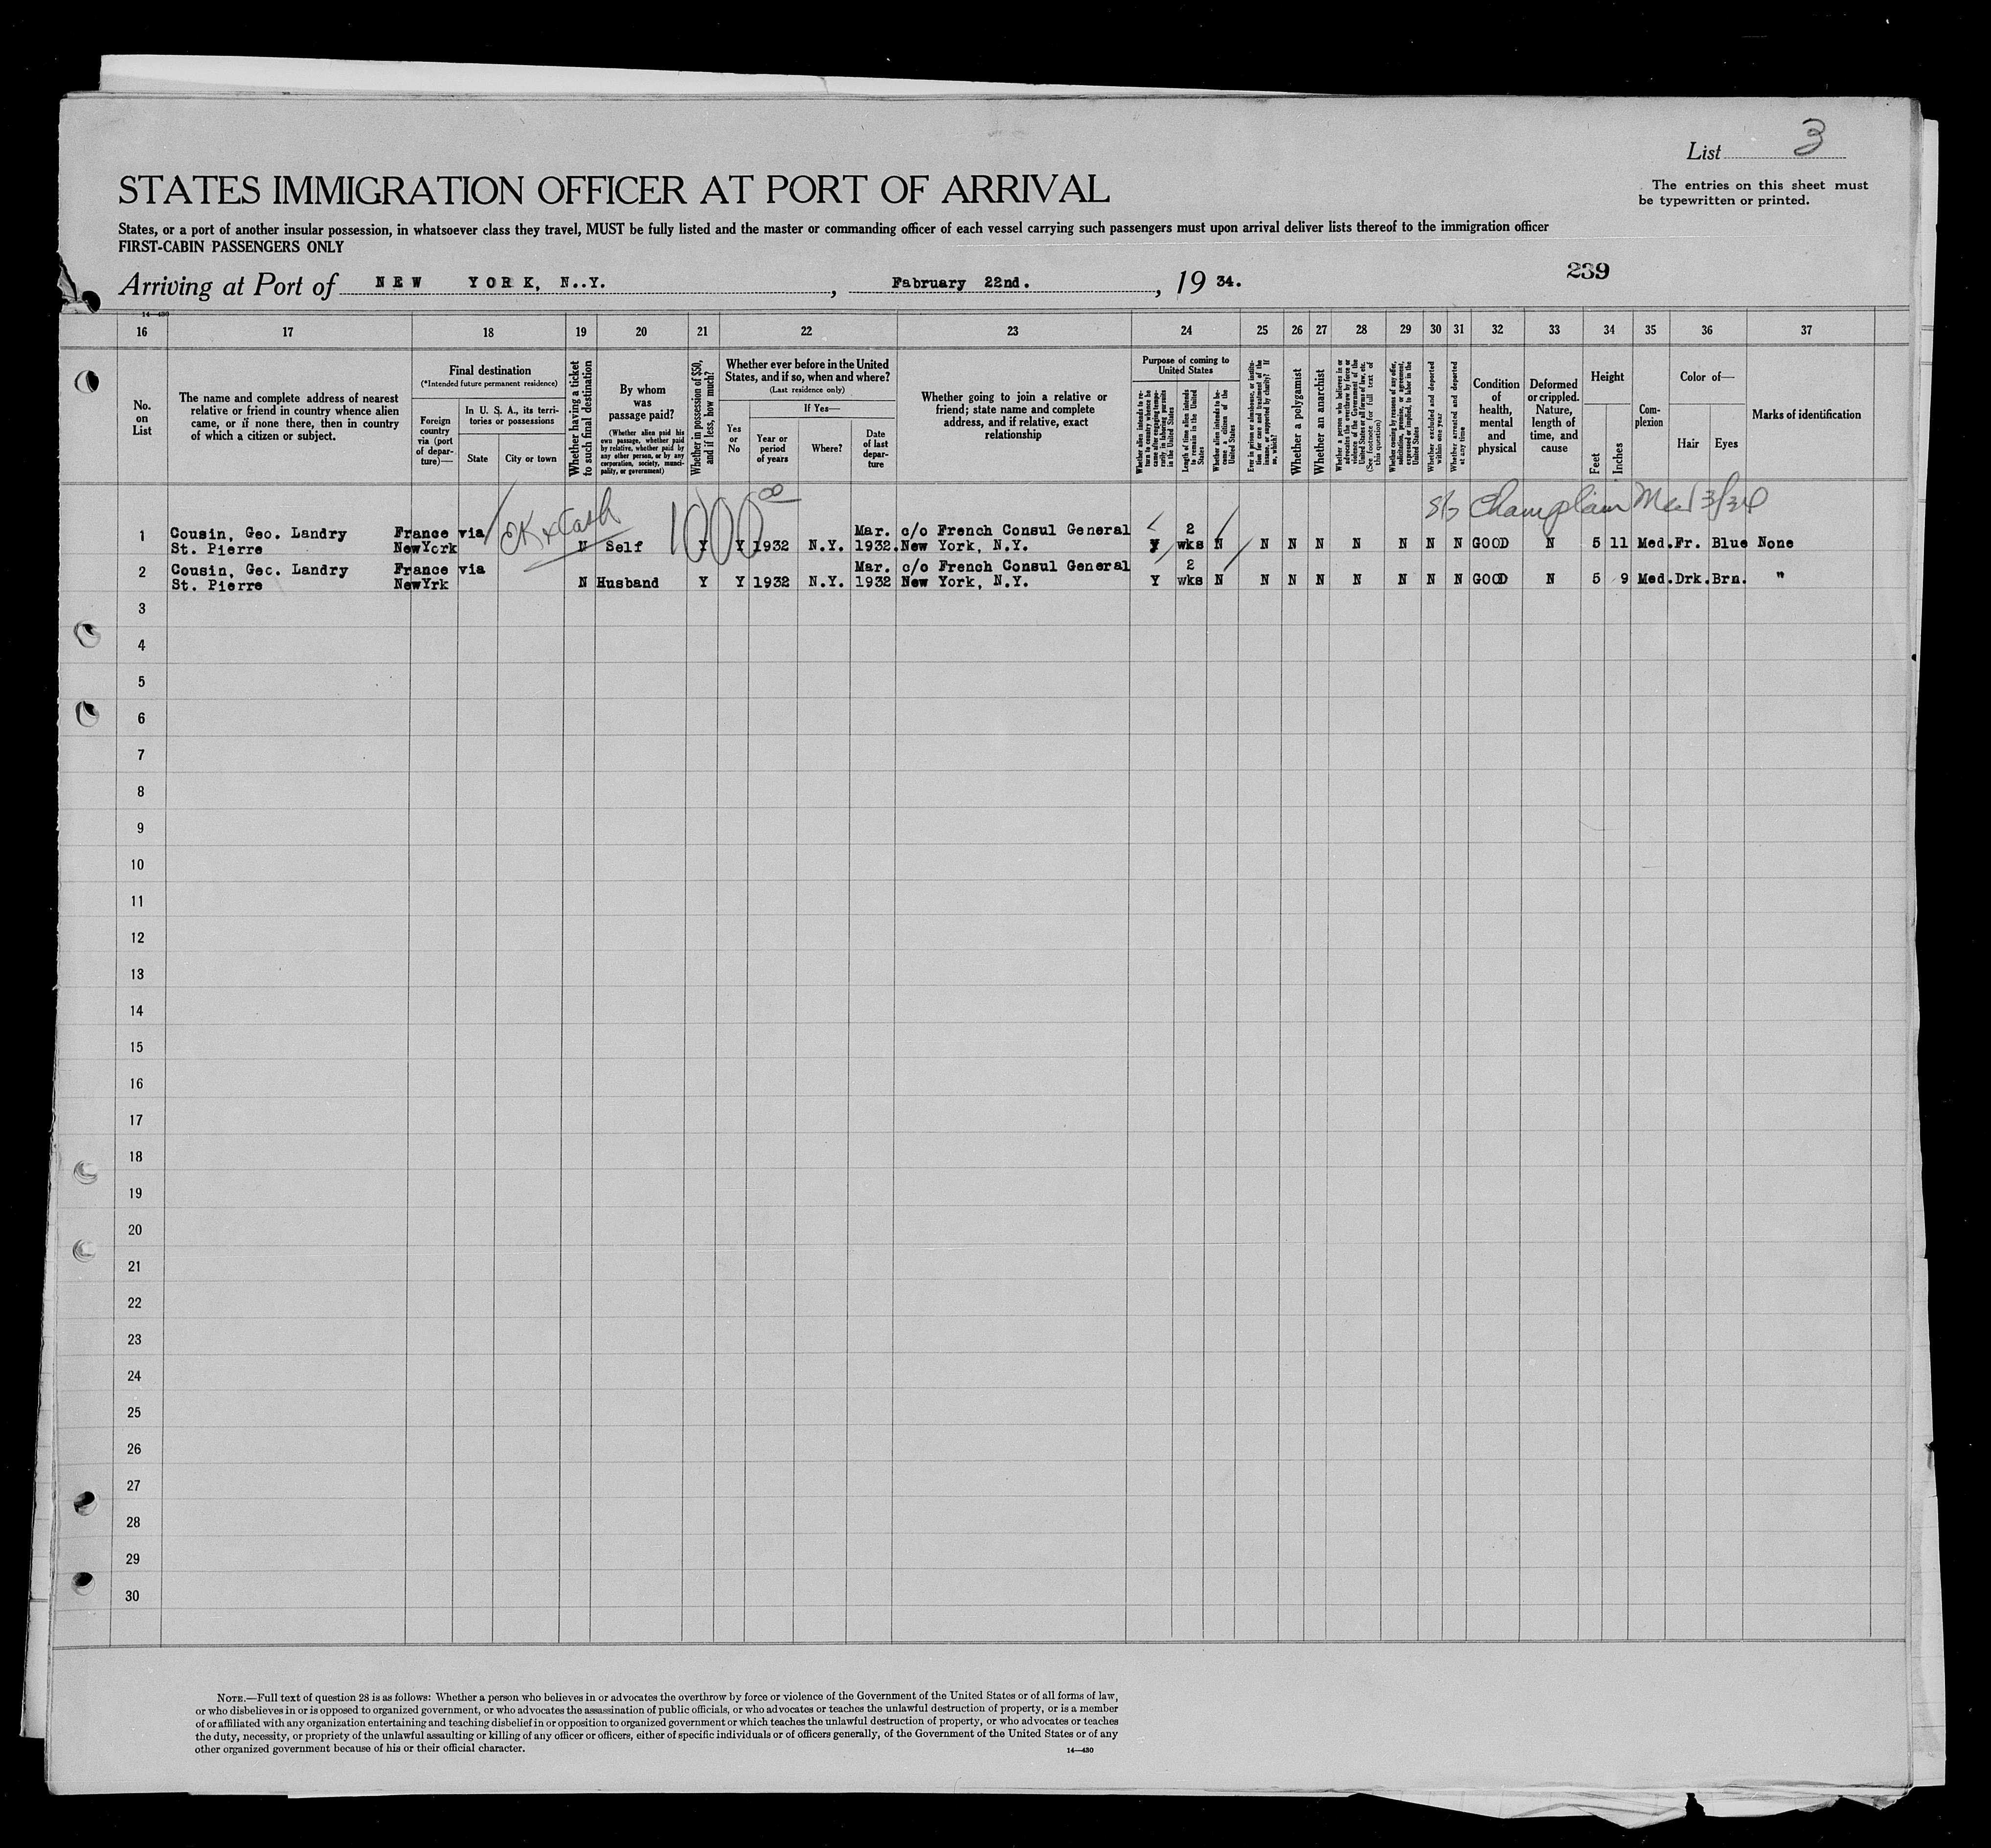 List 3
The entries on this sheet must
be typewritten or printed.
STATES IMMIGRATION OFFICER AT PORT OF ARRIVAL
States, or a port of another insular possession, in whatsoever class they travel, MUST be fully listed and the master or commanding officer of each vessel carrying such passengers must upon arrival deliver lists thereof to the immigration officer
FIRST-CABIN PASSENGERS ONLY
239
Arriving at Port of NEW YORK, N..Y. , Fabruary 22nd. , 19 34.
14—430
16 17 18 19 20 21 22 23 24 25 26 27 28 29 30 31 32 33 34 35 36 37
No.
on
List
The name and complete address of nearest
relative or friend in country whence alien
came, or if none there, then in country
of which a citizen or subject.
Final destination
(*Intended future permanent residence)
Foreign
country
via (port
of depar-
ture)—
In U. S. A., its terri-
tories or possessions
State
City or town
Whether having a ticket
to such final destination
By whom
was
passage paid?
(Whether alien paid his
own passage, whether paid
by relative, whether paid by
any other person, or by any
corporation, society, munici-
pality, or government)
Whether in possession of $50,
and if less, how much?
Whether ever before in the United
States, and if so, when and where?
(Last residence only)
Yes
or
No
If Yes—
Year or
period
of years
Where?
Date
of last
depar-
ture
Whether going to join a relative or
friend; state name and complete
address, and if relative, exact
relationship
Purpose of coming to
United States
Whether alien intends to re-
turn to country whence he
came after engaging tempo-
rarily in laboring pursuits
in the United States
Length of time alien intends
to remain in the United
States
Whether alien intends to be-
come a citizen of the
United States
Ever in prison or almshouse, or institu-
tion for care and treatment of the
insane, or supported by charity? If
so, which?
Whether a polygamist
Whether an anarchist
Whether a person who believes in or
advocates the overthrow by force or
violence of the Government of the
United States or all forms of law, etc.
(See footnote for full text of
this question)
Whether coming by reasons of any offer,
solicitation, promise, or agreement,
expressed or implied, to labor in the
United States
Whether excluded and deported
within one year
Whether arrested and deported
at any time
Condition
of
health,
mental
and
physical
Deformed
or crippled.
Nature,
length of
time, and
cause
Height
Feet
Inches
Com-
plexion
Color of—
Hair
Eyes
Marks of identification
OK & Cash 1000 00 S/S Champlain Mch 3/34
1 Cousin, Geo. Landry France via Mar. c/o French Consul General 2
St. Pierre NewYork N Self Y Y 1932 N.Y. 1932. New York, N.Y. Y wks N N N N N N N N GOOD N 5 11 Med. Fr. Blue None
2 Cousin, Geo. Landry France via Mar. c/o French Consul General 2
St. Pierre NewYrk N Husband Y Y 1932 N.Y. 1932 New York, N.Y. Y wks N N N N N N N N GOOD N 5 9 Med. Drk. Brn. "
3
4
5
6
7
8
9
10
11
12
13
14
15
16
17
18
19
20
21
22
23
24
25
26
27
28
29
30
NOTE.—Full text of question 28 is as follows: Whether a person who believes in or advocates the overthrow by force or violence of the Government of the United States or of all forms of law,
or who disbelieves in or is opposed to organized government, or who advocates the assassination of public officials, or who advocates or teaches the unlawful destruction of property, or is a member
of or affiliated with any organization entertaining and teaching disbelief in or opposition to organized government or which teaches the unlawful destruction of property, or who advocates or teaches
the duty, necessity, or propriety of the unlawful assaulting or killing of any officer or officers, either of specific individuals or of officers generally, of the Government of the United States or of any
other organized government because of his or their official character.
14—430